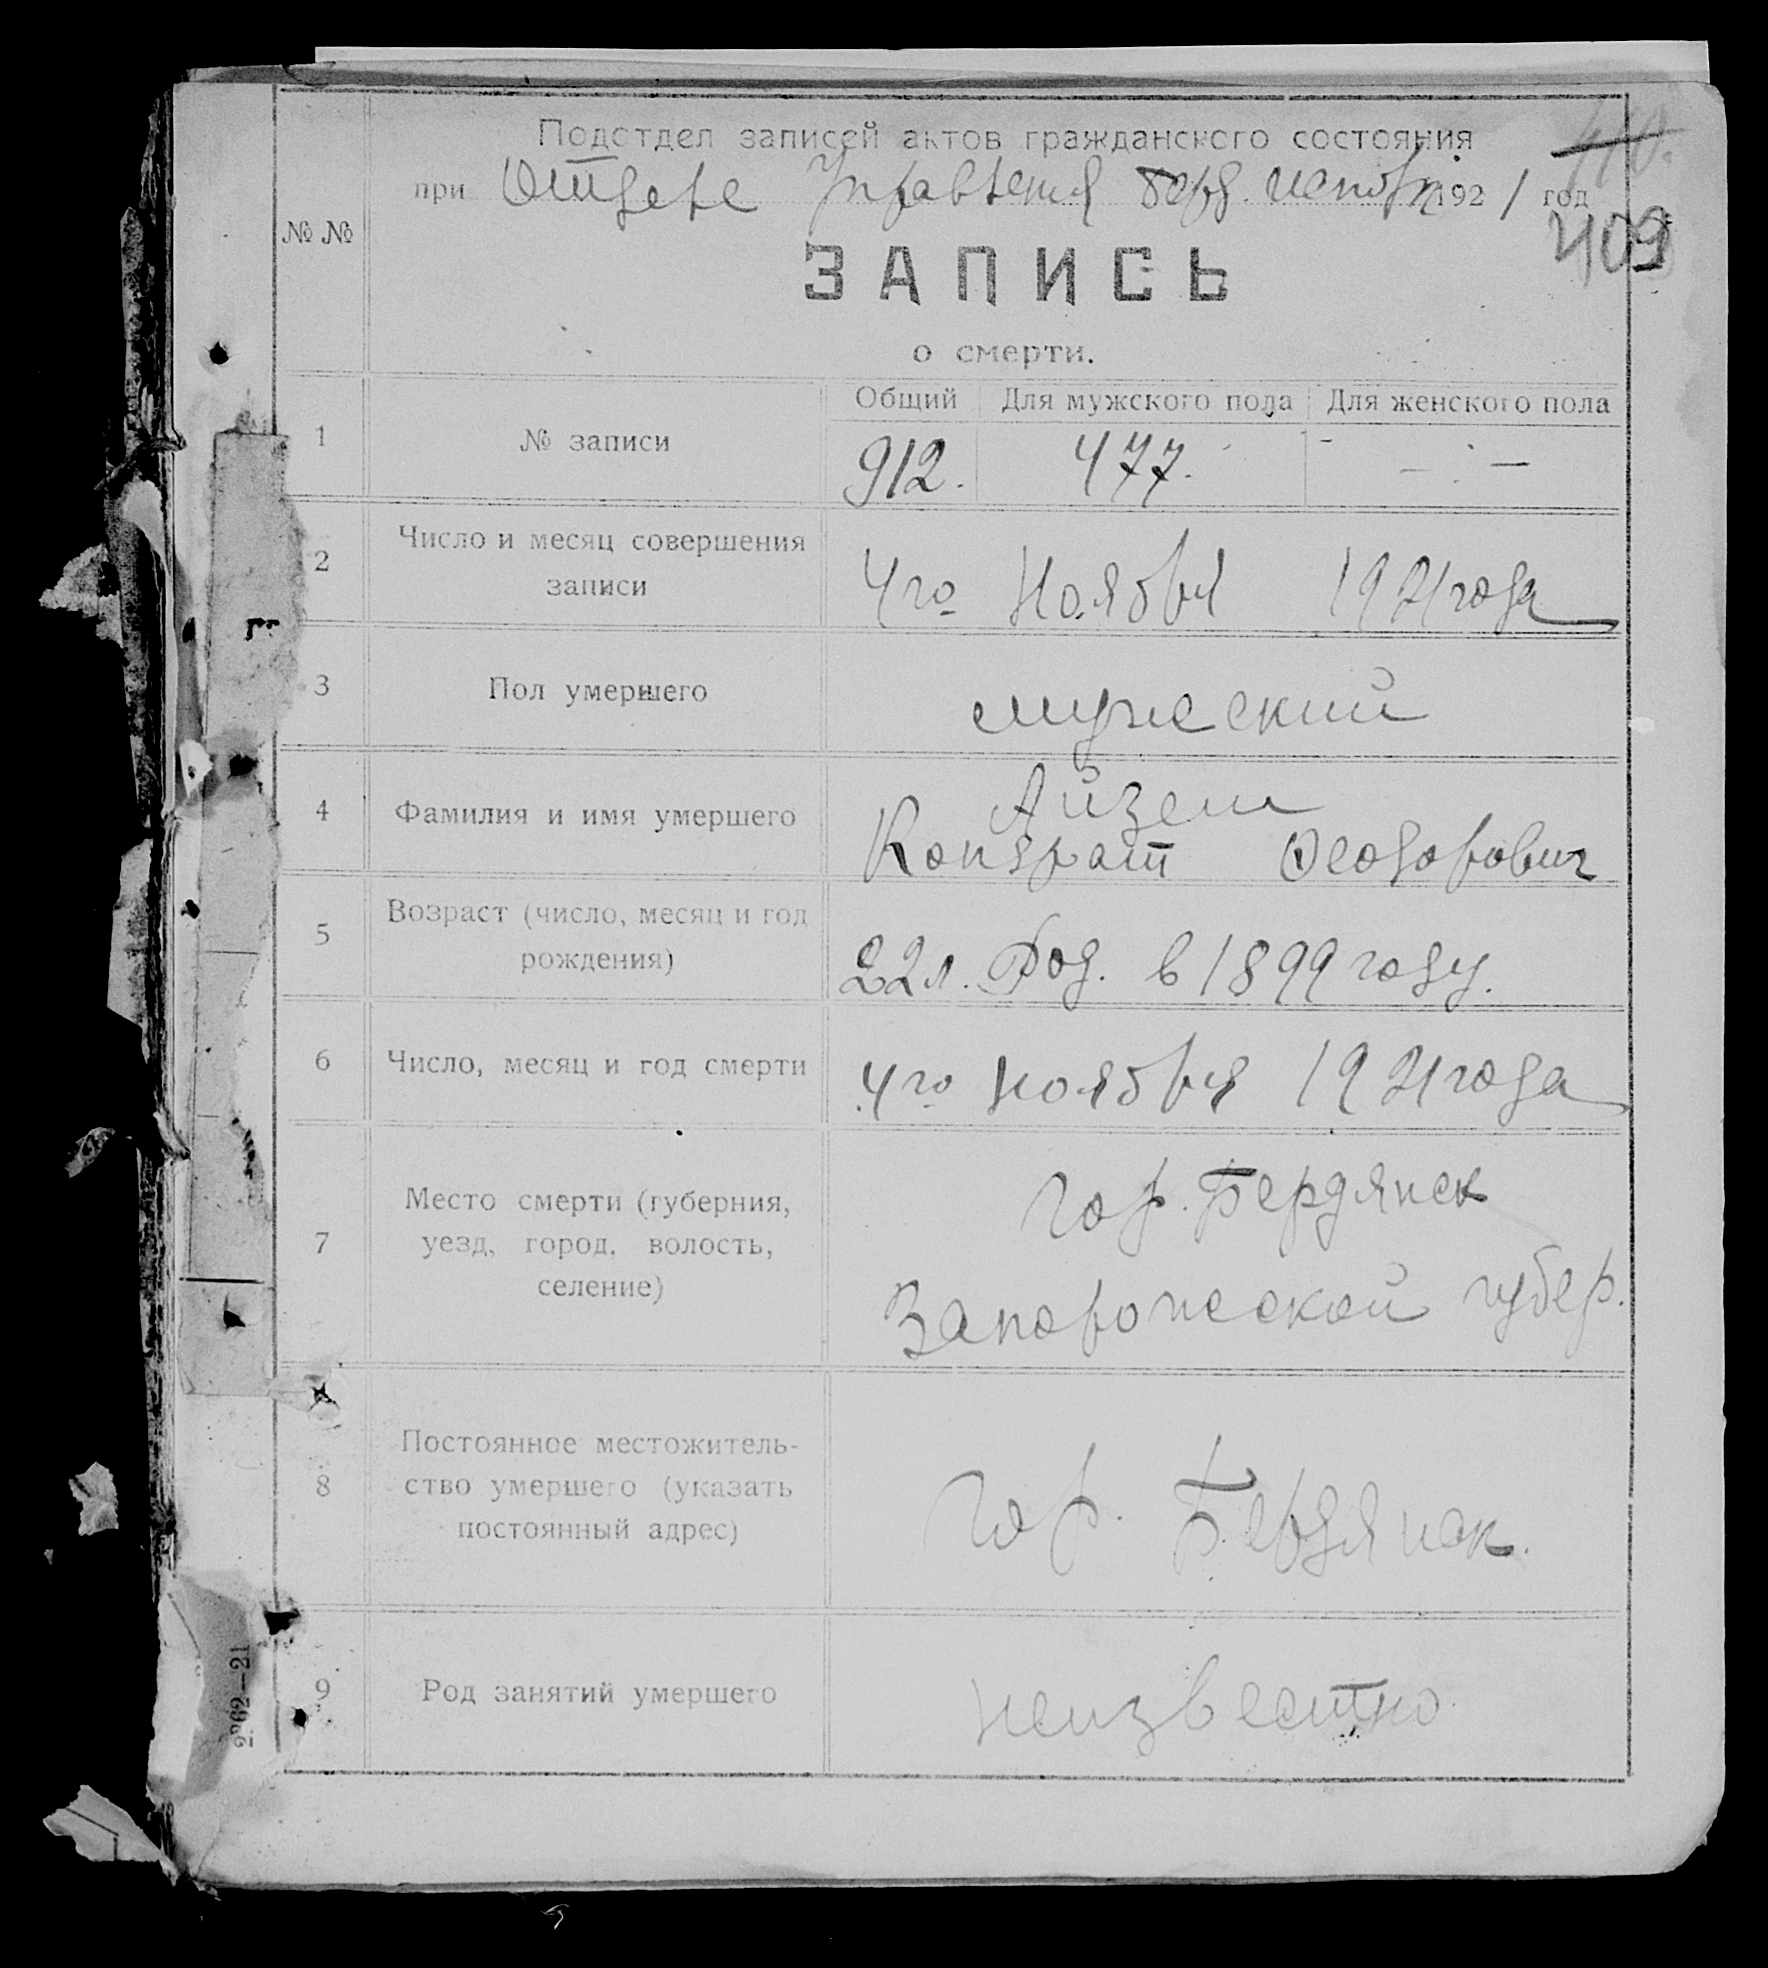 Подотдел записей актов гражданского состояния
при Отделе Управления Берд. исполк. 1921 год
410.
409
№ №
ЗАПИСЬ
о смерти.
Общий Для мужского пола Для женского пола
1 № записи 912. 477. — —
2 Число и месяц совершения
записи
4го Ноября 1921 года
3 Пол умершего мужеский
Айзеш
4 Фамилия и имя умершего
Кондрат Феодорович
5 Возраст (число, месяц и год
рождения)
22 л. Род. в 1899 году.
6 Число, месяц и год смерти 4го ноября 1921 года
7 Место смерти (губерния,
уезд, город, волость,
селение)
гор. Бердянск
Запорожской губер.
8 Постоянное местожитель-
ство умершего (указать
постоянный адрес)
гор. Бердянск.
9 Род занятий умершего неизвестно
2262—21